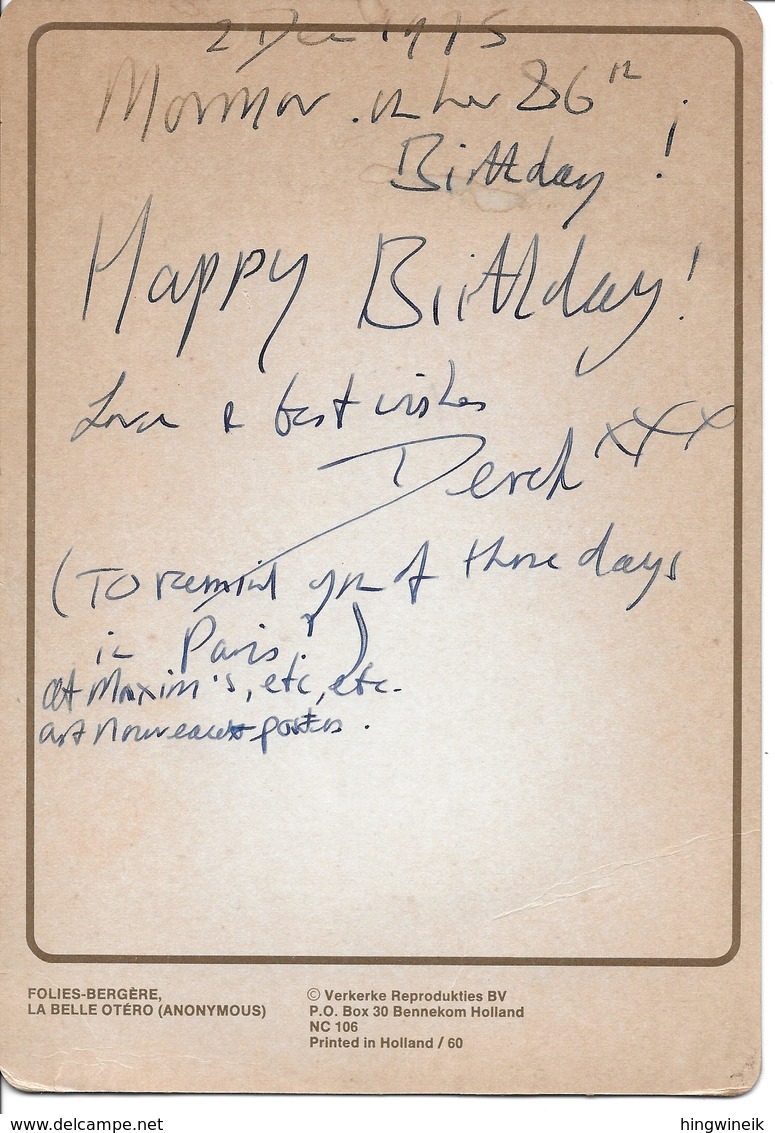 2 Dec 1975
Mormor on her 86th
Birthday !
Happy Birthday!
Love & best wishes
Derek xxx
(TO remind you of those days
in Paris!)
at Maxim's, etc, etc.
art nouveau posters.
FOLIES-BERGÈRE,
LA BELLE OTÉRO (ANONYMOUS)
© Verkerke Reprodukties BV
P.O. Box 30 Bennekom Holland
NC 106
Printed in Holland / 60
delcampe.net
hingwineik